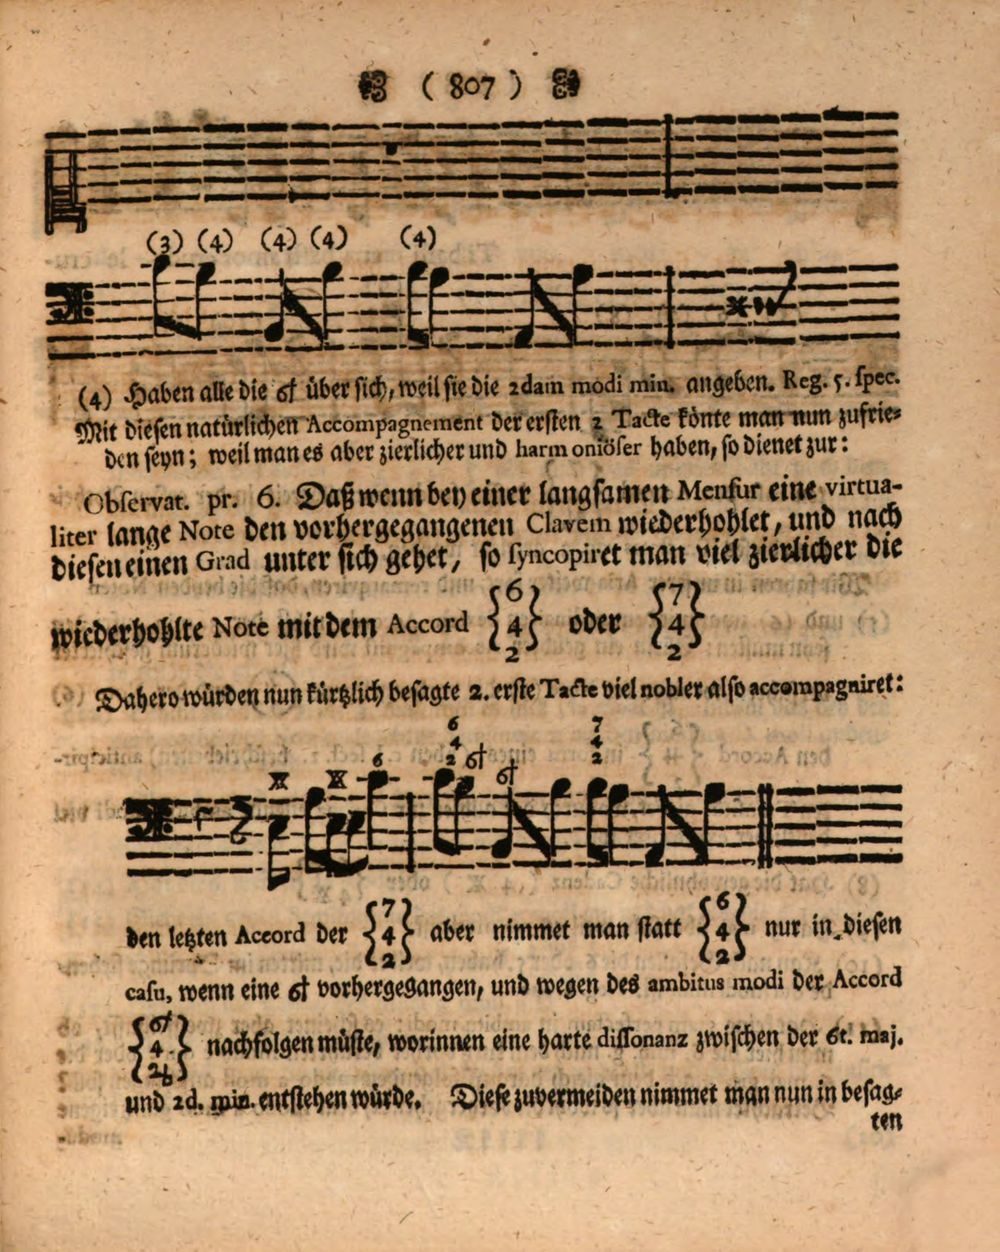 ( 807 )
(3) (4) (4) (4) (4)
(4) Haben alle die 6† über sich, weil sie die 2dam modi min. angeben. Reg. 5. spec.
Mit diesen natürlichen Accompagnement der ersten 2 Tacte könte man nun zufrie-
den seyn; weil man es aber zierlicher und harmoniöser haben, so dienet zur:
Observat. pr. 6. Daß wenn bey einer langsamen Mensur eine virtua-
liter lange Note den vorhergegangenen Clavem wiederhohlet, und nach
diesen einen Grad unter sich gehet, so syncopiret man viel zierlicher die
wiederhohlte Note mit dem Accord {6 4 2} oder {7 4 2}
Dahero würden nun kürtzlich besagte 2. erste Tacte viel nobler also accompagniret:
6 7
4 4
6 2 6† 6† 2
den letzten Accord der {7 4 2} aber nimmet man statt {6 4 2} nur in diesen
casu, wenn eine 6† vorhergegangen, und wegen des ambitus modi der Accord
{6† 4 2b} nachfolgen müste, worinnen eine harte dissonanz zwischen der 6t. maj.
und 2d. min. entstehen würde. Diese zuvermeiden nimmet man nun in besag-
ten